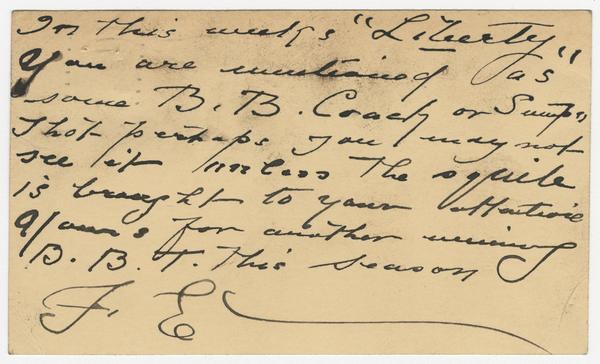 In this weeks "Liberty"
You are mentioned as
some B. B. Coach or Sump'n
Thot perhaps you may not
see it unless the squib
is brought to your attention
Yours for another winning
B. B. T. this season
F. E